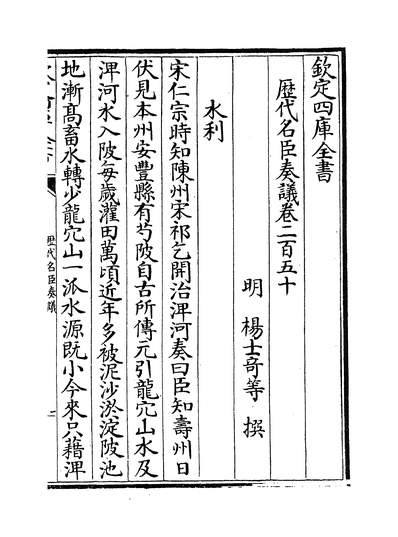 欽定四庫全書
歴代名臣奏議卷二百五十
明 楊士奇等 撰
水利
宋仁宗時知陳州宋祁乞開治渒河奏曰臣知壽州日
伏見本州安豐縣有芍陂自古所傳元引龍穴山水及
渒河水入陂每歲灌田萬頃近年多被泥沙淤淀陂池
地漸髙畜水轉少龍穴山一派水源既小今來只藉渒
歴代名臣奏議